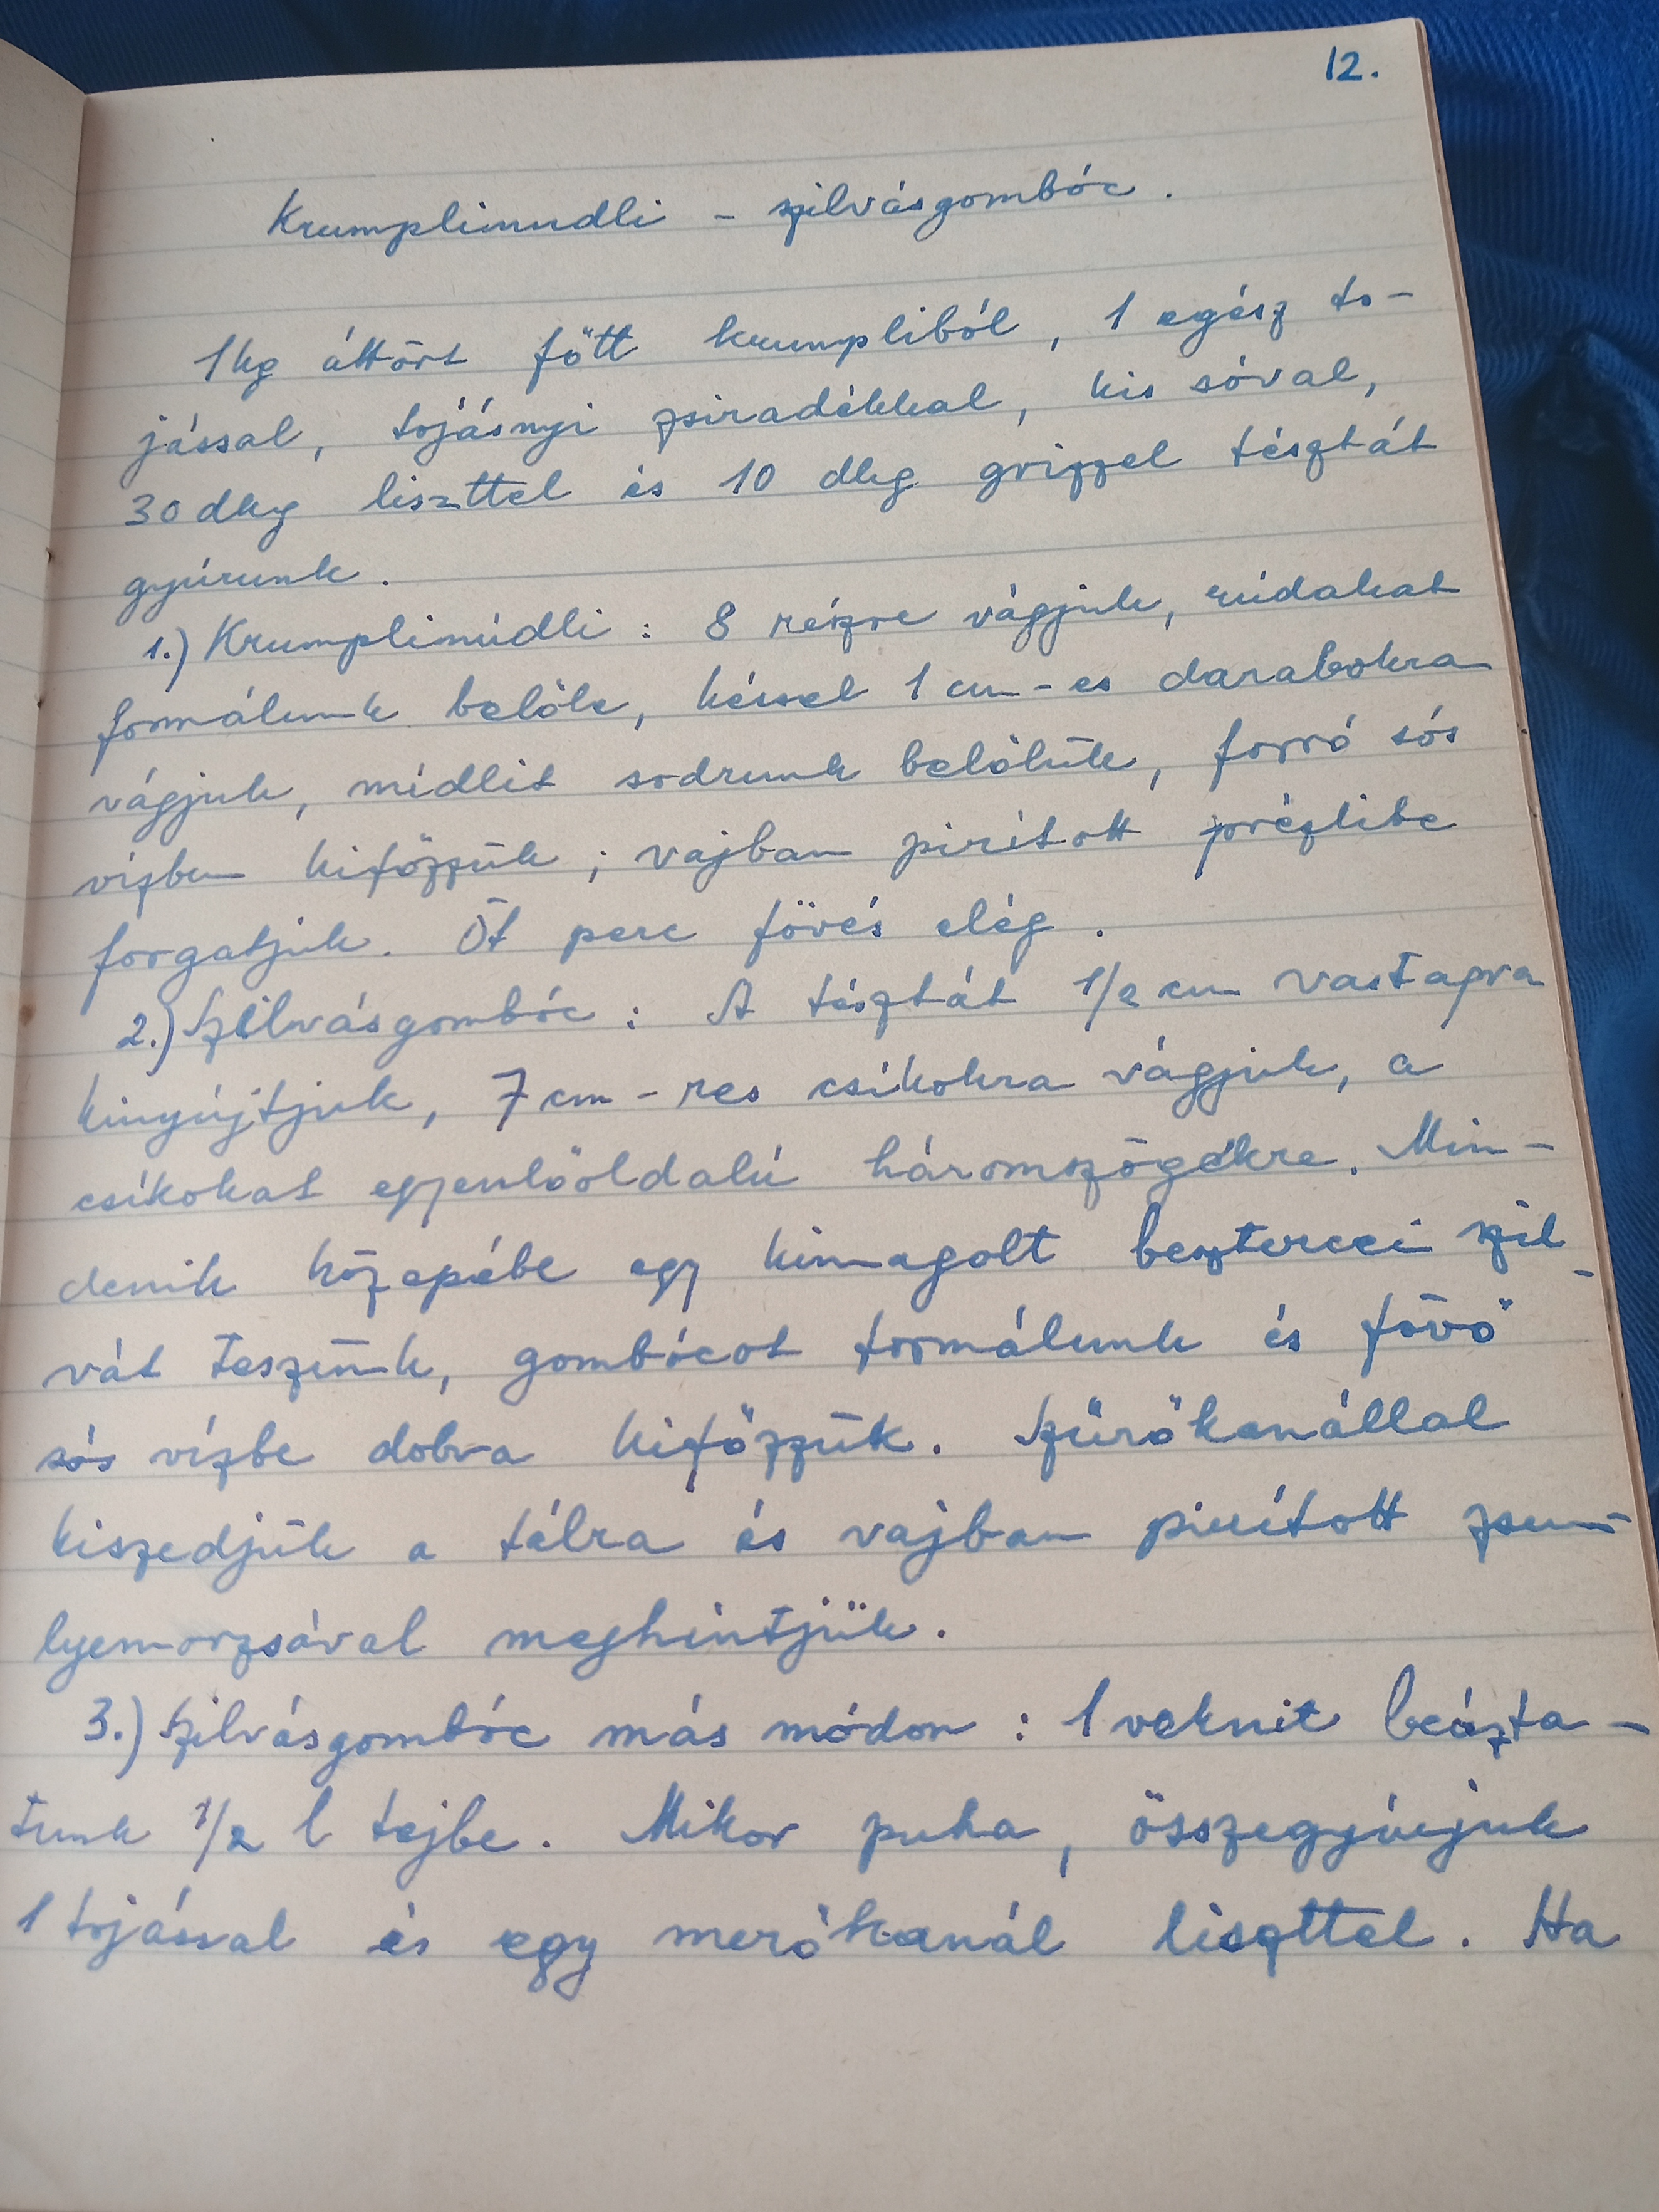 12.
Krumplinudli - szilvásgombóc.
1 kg áttört főtt krumpliból, 1 egész to-
jással, tojásnyi zsiradékkal, kis sóval,
30 dkg liszttel és 10 dkg grizzel tésztát
gyúrunk.
1.) Krumplinudli: 8 részre vágjuk, rúdakat
formálunk belőle, késsel 1 cm-es darabokra
vágjuk, nudlit sodrunk belőlük, forró sós
vízben kifőzzük; vajban pirított prézlibe
forgatjuk. Öt perc fövés elég.
2.) Szilvásgombóc: A tésztát 1/2 cm vastagra
kinyújtjuk, 7 cm-res csíkokra vágjuk, a
csíkokat egyenlőoldalú háromszögekre. Min-
denik közepébe egy kimagolt besztercei szil-
vát teszünk, gombócot formálunk és fövő
sós vízbe dobva kifőzzük. Szűrőkanállal
kiszedjük a tálra és vajban pirított zsem-
lyemorzsával meghintjük.
3.) Szilvásgombóc más módon: 1 veknit beázta-
tunk 1/2 l tejbe. Mikor puha, összegyúrjuk
1 tojással és egy merőkanál liszttel. Ha